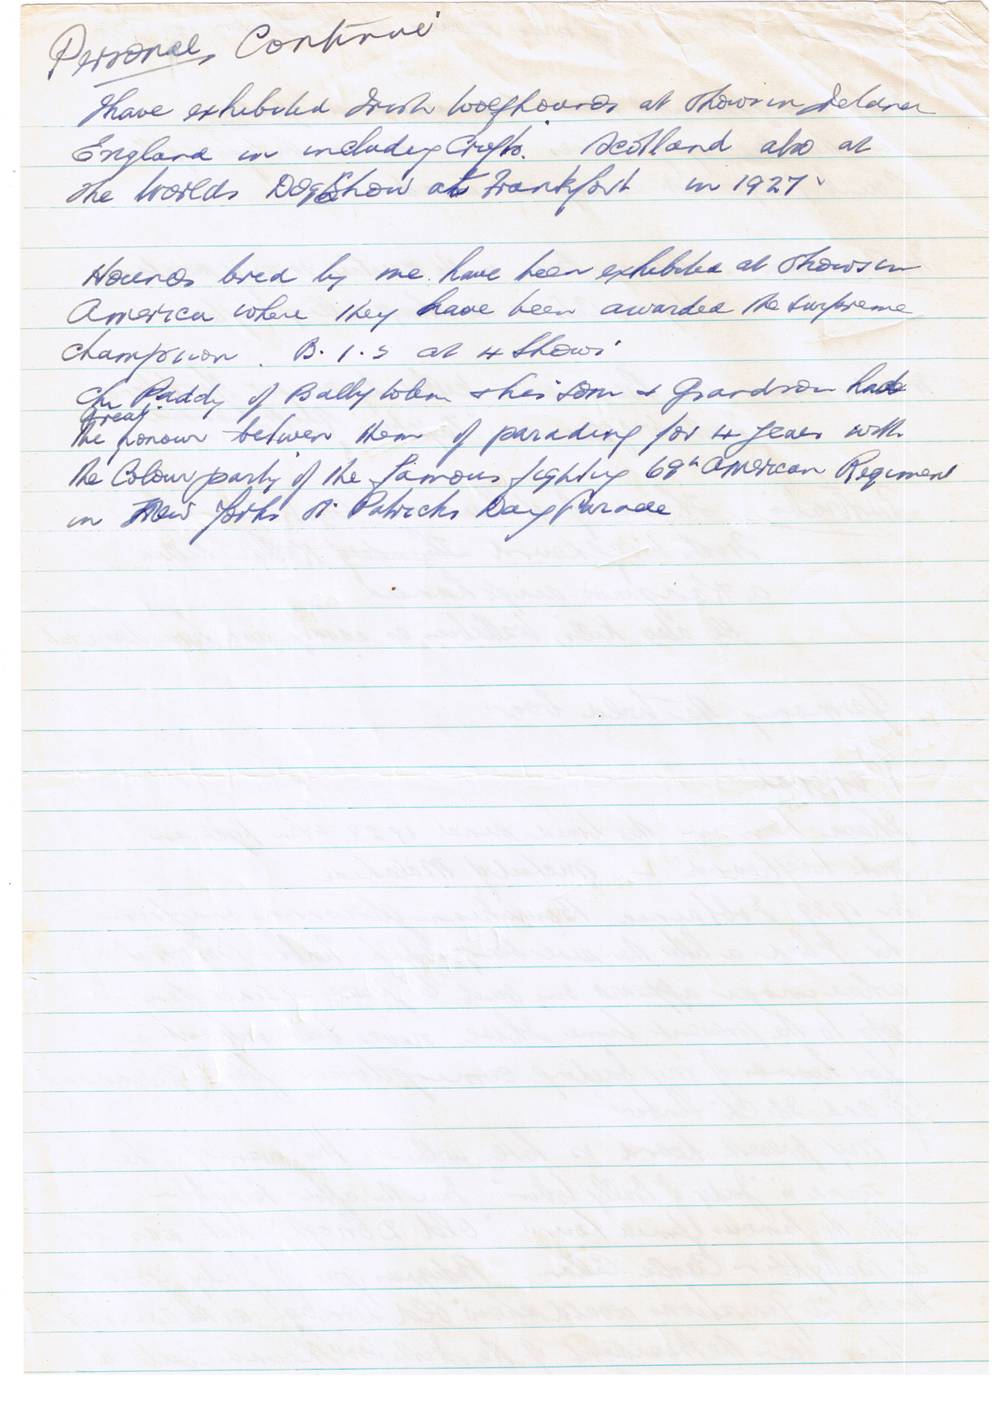 Personal, Continue
I have exhibited Irish Wolfhounds at Shows in Ireland
England in including Crufts. Scotland also at
the Worlds Dog Show at Frankfort in 1927
Hounds bred by me have been exhibited at Shows in
America where they have been awarded the supreme
champion. B.I.S at 4 Shows
Ch Paddy of Ballytobin & his son & Grandson had
great
the honour between them of parading for 4 years with
the Colour party of the famous fighting 69th American Regiment
in New Yorks St Patricks Day Parade